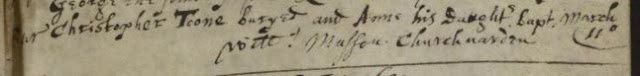 Christopher Toone buryed and Anne his daught.r bapt. March 11o
Will: Masson Churchwarden